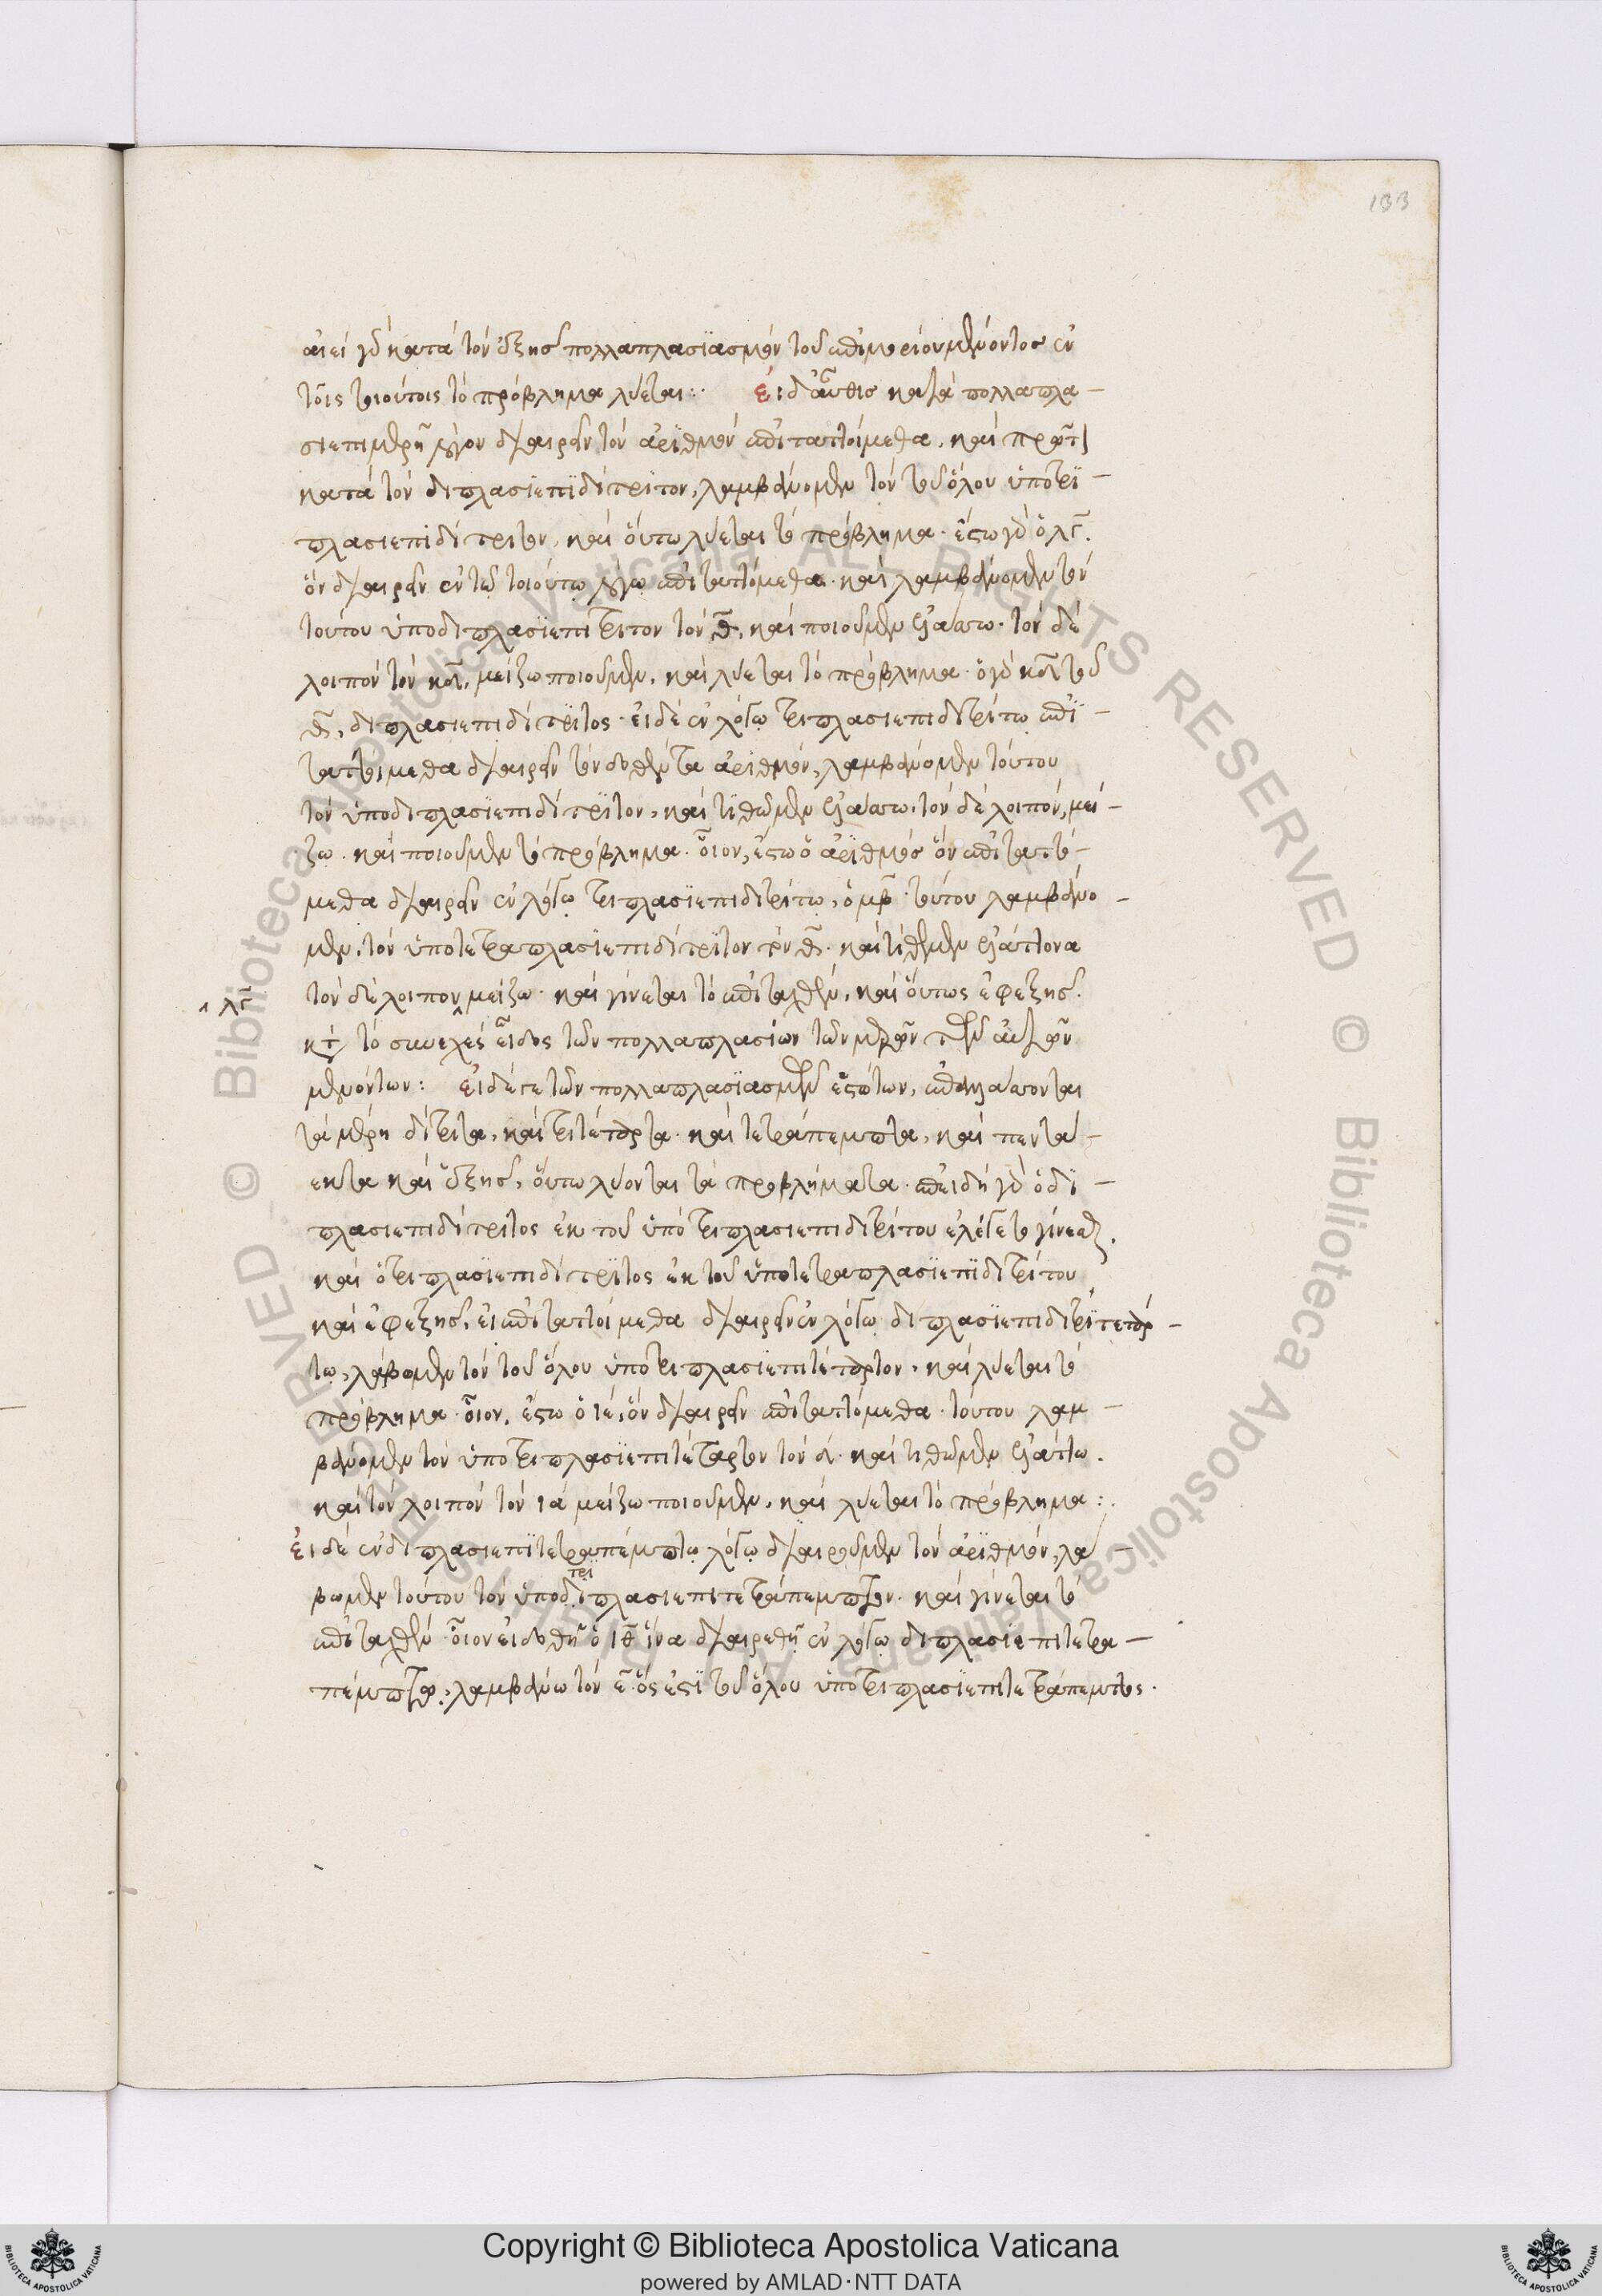 133
αἰεὶ γὰρ κατὰ τὸν ἑξῆς πολλαπλασϊασμὸν τοῦ ἐπιμορίου μένοντος ἐν
τοῖς τοιούτοις τὸ πρόβλημα λύεται : εἰ δ' αὖθις κατὰ πολλαπλα-
σιεπιμερῆ λόγον διαιρεῖν τὸν ἀριθμὸν ἐπιταττοίμεθα, καὶ πρῶτον
κατὰ τὸν διπλασιεπιδίτριτον, λαμβάνομεν τὸν τοῦ ὅλου ὑποτρι-
πλασιεπιδίτριτον, καὶ οὕτω λύεται τὸ πρόβλημα. ἔστω γὰρ ὁ λγ.
ὃν διαιρεῖν ἐν τῷ τοιούτῳ λόγῳ ἐπιταττόμεθα. καὶ λαμβάνομεν τὸν
τούτου ὑποδιπλασιεπίτριτον τὸν θ, καὶ ποιοῦμεν ἐλάττω. τὸν δὲ
λοιπὸν τὸν κδ, μείζω ποιοῦμεν, καὶ λύεται τὸ πρόβλημα. ὁ γὰρ κδ τοῦ
θ, διπλασιεπιδίτριτος. εἰ δὲ ἐν λόγῳ τριπλασιεπιδιτρίτῳ ἐπι-
ταττοίμεθα διαιρεῖν τὸν δοθέντα ἀριθμόν, λαμβάνομεν τούτου
τὸν ὑποδιπλασιεπιδίτριτον, καὶ τιθῶμεν ἐλάττω, τὸν δὲ λοιπόν, μεί-
ζω. καὶ ποιοῦμεν τὸ πρόβλημα. οἷον, ἔστω ὁ ἀριθμὸς ὃν ἐπιταττό-
μεθα διαιρεῖν ἐν λόγῳ τριπλασιεπιδιτρίτῳ, ὁ μβ. τούτου λαμβάνο-
μεν, τὸν ὑποτετραπλασιεπιδίτριτον τὸν θ. καὶ τίθεμεν ἐλάττονα
τὸν δὲ λοιπὸν μείζω. καὶ γίνεται τὸ ἐπιταχθέν, καὶ οὕτως ἐφεξῆς.
λγ
κατὰ τὸ συνεχὲς εἶδος τῶν πολλαπλασίων τῶν μερῶν τῶν αὐτῶν
μενόντων : εἰ δέ γε τῶν πολλαπλασιασμῶν ἑστώτων, ἐπαλλάττονται
τὰ μέρη δίτριτα, καὶ τριτέταρτα. καὶ τετράπεμπτα, καὶ πεντά-
εκτα καὶ ἑξῆς, οὕτω λύονται τὰ προβλήματα. ἐπειδὴ γὰρ ὁ δι-
πλασιεπιδίτριτος ἐκ τοῦ ὑποτριπλασιεπιδιτρίτου ἐλέγετο γίνεσθαι.
καὶ ὁ τριπλασιεπιδίτριτος ἐκ τοῦ ὑποτετραπλασιεπιδιτρίτου
καὶ ἐφεξῆς, εἰ ἐπιταττοίμεθα διαιρεῖν ἐν λόγῳ διπλασιεπιδιτριτετάρ-
τῳ, λάβωμεν τὸν τοῦ ὅλου ὑποτριπλασιεπιτέταρτον, καὶ λύεται τὸ
πρόβλημα. οἷον, ἔστω ὁ ιέ, ὃν διαιρεῖν ἐπιταττόμεθα. τούτου λαμ-
βάνομεν τὸν ὑποτριπλασιεπιτέταρτον τὸν δ. καὶ τιθῶμεν ἐλάττω.
καὶ τὸν λοιπὸν τὸν ια μείζω ποιοῦμεν, καὶ λύεται τὸ πρόβλημα :
εἰ δὲ ἐν διπλασιεπιτετραπέμπτῳ λόγῳ διαιροῦμεν τὸν ἀριθμόν, λά-
τρι
βωμεν τούτου τὸν ὑποδιπλασιεπιτετράπεμπτον. καὶ γίνεται τὸ
ἐπιταχθέν. οἷον εἰ δοθῇ ὁ ιθ ἵνα διαιρεθῇ ἐν λόγῳ διπλασιεπιτετρα-
πέμπτῳ, λαμβάνω τὸν ε. ὅς ἐστι τοῦ ὅλου ὑποτριπλασιεπιτετράπεμπτος.
Copyright © Biblioteca Apostolica Vaticana
powered by AMLAD·NTT DATA